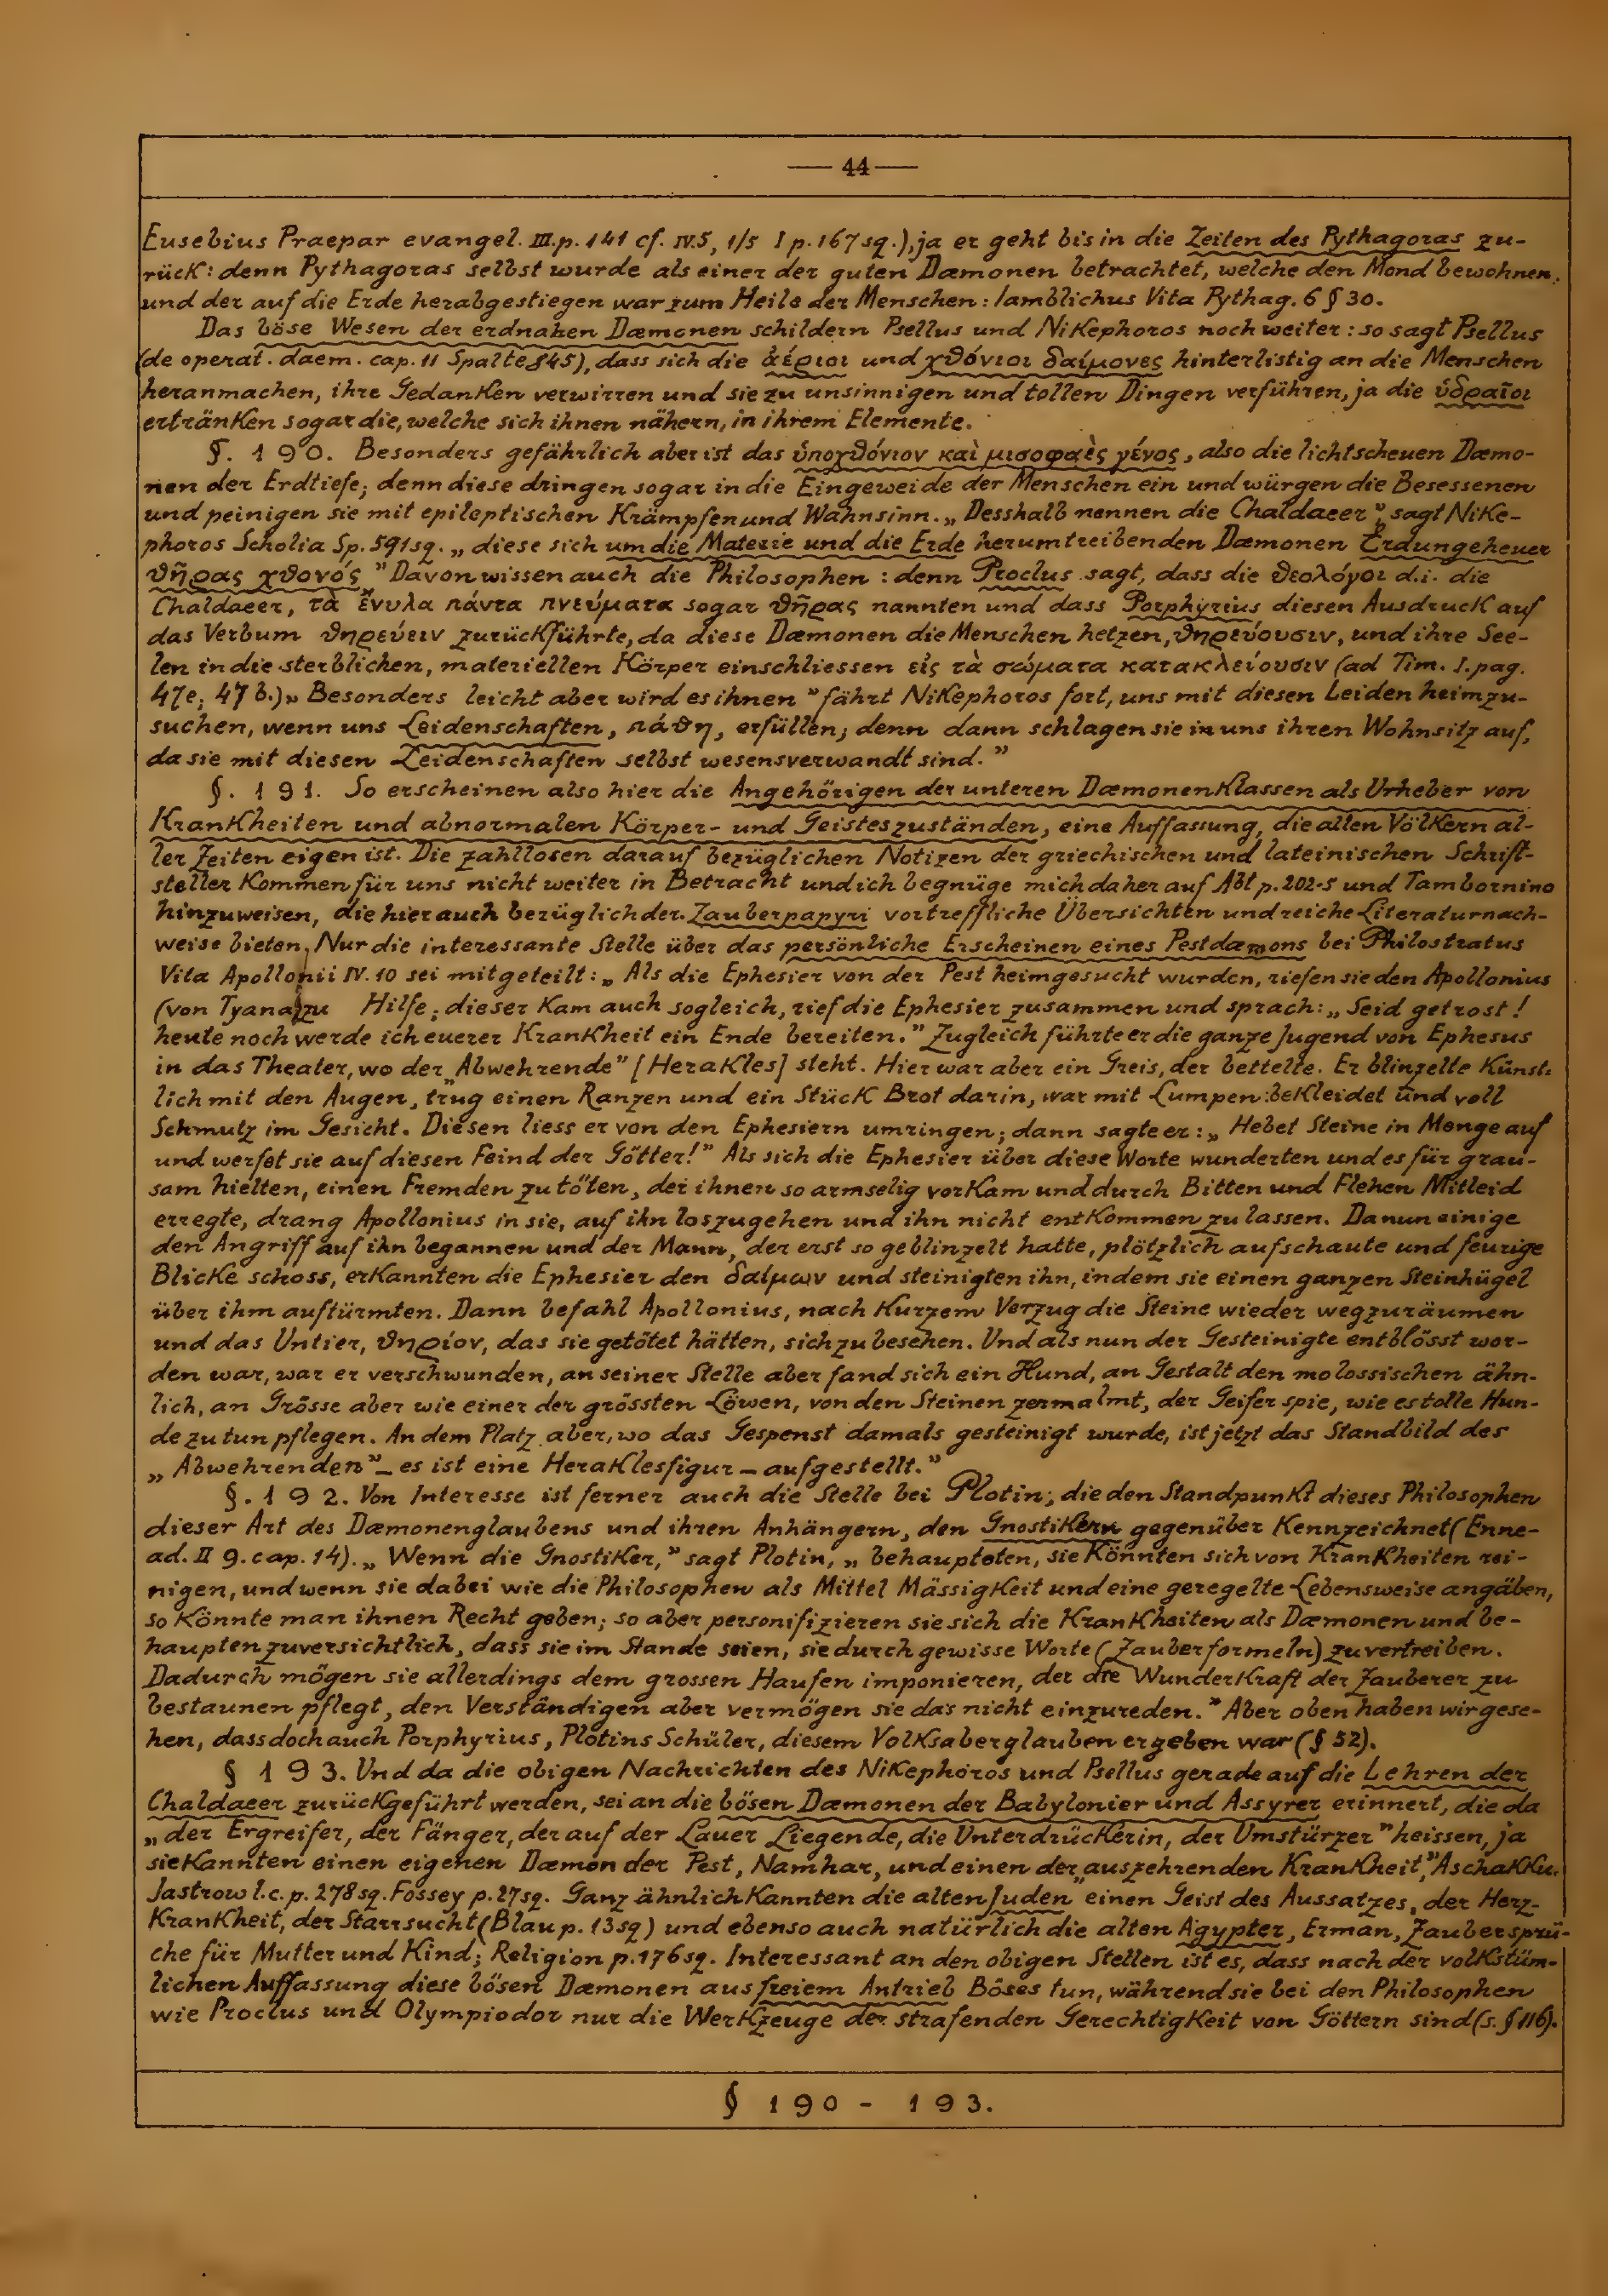 — 44 —
Eusebius Praepar evangel. III.p. 141 cf. IV.5, 1/5 I p. 167 sq.), ja er geht bis in die Zeiten des Pythagoras zu-
rück: denn Pythagoras selbst wurde als einer der guten Dæmonen betrachtet, welche den Mond bewohnen,
und der auf die Erde herabgestiegen war zum Heile der Menschen: Iamblichus Vita Pythag. 6 § 30.
Das böse Wesen der erdnahen Dæmonen schildern Psellus und Nikephoros noch weiter: so sagt Psellus
(de operat. daem. cap. 11 Spalte 845), dass sich die ἀέριοι und χθόνιοι δαίμονες hinterlistig an die Menschen
heranmachen, ihre Gedanken verwirren und sie zu unsinnigen und tollen Dingen verführen, ja die ὑδραῖοι
ertränken sogar die, welche sich ihnen nähern, in ihrem Elemente.
§. 190. Besonders gefährlich aber ist das ὑποχθόνιον καὶ μισοφαὲς γένος, also die lichtscheuen Dæmo-
nen der Erdtiefe; denn diese dringen sogar in die Eingeweide der Menschen ein und würgen die Besessenen
und peinigen sie mit epileptischen Krämpfen und Wahnsinn. „Desshalb nennen die Chaldaeer", sagt Nike-
phoros Scholia Sp. 591 sq. „diese sich um die Materie und die Erde herumtreibenden Dæmonen Erdungeheuer
θῆρας χθονός." Davon wissen auch die Philosophen: denn Proclus sagt, dass die θεολόγοι d.i. die
Chaldaeer, τὰ ἔνυλα πάντα πνεύματα sogar θῆρας nannten und dass Porphyrius diesen Ausdruck auf
das Verbum θηρεύειν zurückführte, da diese Dæmonen die Menschen hetzen, θηρεύουσιν, und ihre See-
len in die sterblichen, materiellen Körper einschliessen εἰς τὰ σώματα κατακλείουσιν (ad Tim. I. pag.
47e; 47 b.) „Besonders leicht aber wird es ihnen" fährt Nikephoros fort, uns mit diesen Leiden heimzu-
suchen, wenn uns Leidenschaften, πάθη, erfüllen; denn dann schlagen sie in uns ihren Wohnsitz auf,
da sie mit diesen Leidenschaften selbst wesensverwandt sind."
§. 191. So erscheinen also hier die Angehörigen der unteren Dæmonenklassen als Urheber von
Krankheiten und abnormalen Körper- und Geisteszuständen, eine Auffassung, die allen Völkern al-
ler Zeiten eigen ist. Die zahllosen darauf bezüglichen Notizen der griechischen und lateinischen Schrift-
steller kommen für uns nicht weiter in Betracht und ich begnüge mich daher auf Abt p. 202-5 und Tambornino
hinzuweisen, die hier auch bezüglich der Zauberpapyri vortreffliche Übersichten und reiche Literaturnach-
weise bieten. Nur die interessante Stelle über das persönliche Erscheinen eines Pestdæmons bei Philostratus
Vita Apollonii IV. 10 sei mitgeteilt: „Als die Ephesier von der Pest heimgesucht wurden, riefen sie den Apollonius
(von Tyana) zu Hilfe; dieser kam auch sogleich, rief die Ephesier zusammen und sprach: „Seid getrost!
heute noch werde ich euerer Krankheit ein Ende bereiten." Zugleich führte er die ganze Jugend von Ephesus
in das Theater, wo der „Abwehrende" [Herakles] steht. Hier war aber ein Greis, der bettelte. Er blinzelte künst-
lich mit den Augen, trug einen Ranzen und ein Stück Brot darin, war mit Lumpen bekleidet und voll
Schmutz im Gesicht. Diesen liess er von den Ephesiern umringen; dann sagte er: „Hebet Steine in Menge auf
und werfet sie auf diesen Feind der Götter!" Als sich die Ephesier über diese Worte wunderten und es für grau-
sam hielten, einen Fremden zu töten, der ihnen so armselig vorkam und durch Bitten und Flehen Mitleid
erregte, drang Apollonius in sie, auf ihn loszugehen und ihn nicht entkommen zu lassen. Da nun einige
den Angriff auf ihn begannen und der Mann, der erst so geblinzelt hatte, plötzlich aufschaute und feurige
Blicke schoss, erkannten die Ephesier den δαίμων und steinigten ihn, indem sie einen ganzen Steinhügel
über ihm auftürmten. Dann befahl Apollonius, nach kurzem Verzug die Steine wieder wegzuräumen
und das Untier, θηρίον, das sie getötet hätten, sich zu besehen. Und als nun der Gesteinigte entblösst wor-
den war, war er verschwunden, an seiner Stelle aber fand sich ein Hund, an Gestalt den molossischen ähn-
lich, an Grösse aber wie einer der grössten Löwen, von den Steinen zermalmt, der Geifer spie, wie es tolle Hun-
de zu tun pflegen. An dem Platz aber, wo das Gespenst damals gesteinigt wurde, ist jetzt das Standbild des
„Abwehrenden" – es ist eine Heraklesfigur – aufgestellt."
§. 192. Von Interesse ist ferner auch die Stelle bei Plotin, die den Standpunkt dieses Philosophen
dieser Art des Dæmonenglaubens und ihren Anhängern, den Gnostikern gegenüber kennzeichnet (Enne-
ad. II 9. cap. 14). „Wenn die Gnostiker," sagt Plotin, „behaupteten, sie könnten sich von Krankheiten rei-
nigen, und wenn sie dabei wie die Philosophen als Mittel Mässigkeit und eine geregelte Lebensweise angäben,
so könnte man ihnen Recht geben; so aber personifizieren sie sich die Krankheiten als Dæmonen und be-
haupten zuversichtlich, dass sie im Stande seien, sie durch gewisse Worte (Zauberformeln) zu vertreiben.
Dadurch mögen sie allerdings dem grossen Haufen imponieren, der die Wunderkraft der Zauberer zu
bestaunen pflegt, den Verständigen aber vermögen sie das nicht einzureden." Aber oben haben wir gese-
hen, dass doch auch Porphyrius, Plotins Schüler, diesem Volksaberglauben ergeben war (§ 52).
§ 193. Und da die obigen Nachrichten des Nikephoros und Psellus gerade auf die Lehren der
Chaldaeer zurückgeführt werden, sei an die bösen Dæmonen der Babylonier und Assyrer erinnert, die da
„der Ergreifer, der Fänger, der auf der Lauer Liegende, die Unterdrückerin, der Umstürzer" heissen, ja
sie kannten einen eigenen Dæmon der Pest, Namhar, und einen der „auszehrenden Krankheit," Aschakku.
Jastrow l.c. p. 278 sq. Fossey p. 27 sq. Ganz ähnlich kannten die alten Juden einen Geist des Aussatzes, der Herz-
krankheit, der Starrsucht (Blau p. 13 sq) und ebenso auch natürlich die alten Ägypter, Erman, Zaubersprü-
che für Mutter und Kind; Religion p. 176 sq. Interessant an den obigen Stellen ist es, dass nach der volkstüm-
lichen Auffassung diese bösen Dæmonen aus freiem Antrieb Böses tun, während sie bei den Philosophen
wie Proclus und Olympiodor nur die Werkzeuge der strafenden Gerechtigkeit von Göttern sind (s. § 116).
§ 190 - 193.